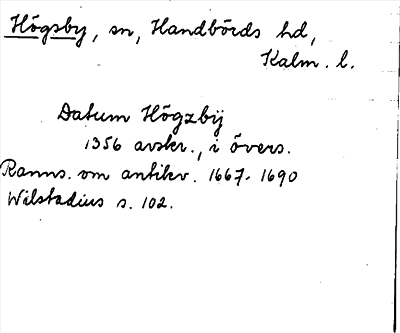 Högsby, sn, Handbörds hd,
Kalm. l.
Datum Högzbij
1356 avskr., i övers.
Ranns. om antikv. 1667-1690
Wilstadius s. 102.